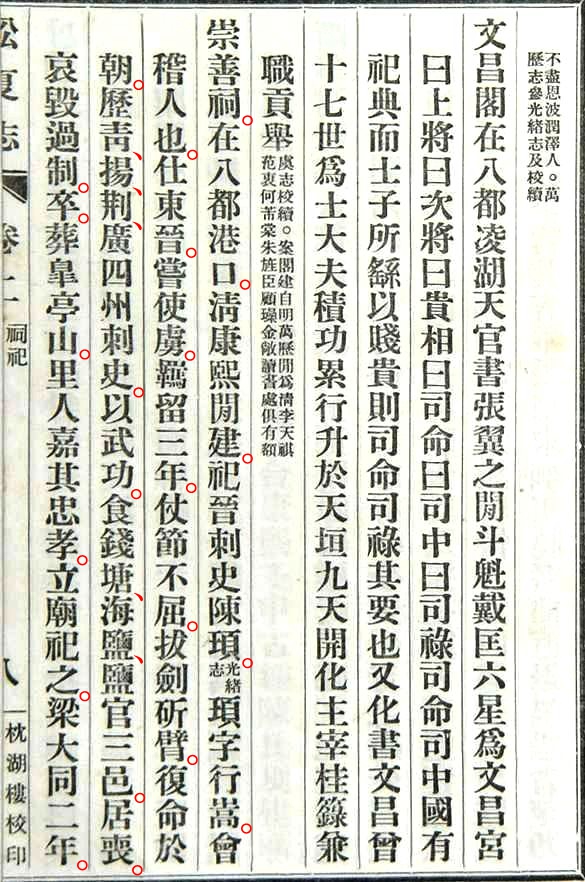 不盡恩波潤澤人。萬
歷志參光緒志及校續
文昌閣在八都凌湖天官書張翼之閒斗魁戴匡六星爲文昌宮
曰上將曰次將曰貴相曰司命曰司中曰司祿司命司中國有
祀典而士子所繇以賤貴則司命司祿其要也又化書文昌曾
十七世爲士大夫積功累行升於天垣九天開化主宰桂籙兼
職貢舉虞志校續。案閣建自明萬歷閒爲淸李天祺
范衷何芾棠朱旌臣顧璪金敞讀書處俱有額
崇善祠在八都港口淸康熙閒建祀晉刺史陳頊光緒志頊字行嵩會
稽人也仕東晉嘗使虜羈留三年仗節不屈拔劍斫臂復命於
朝歷靑揚荆廣四州刺史以武功食錢塘海鹽鹽官三邑居喪
哀毀過制卒葬皐亭山里人嘉其忠孝立廟祀之梁大同二年
松夏志
卷二
祠祀
八
枕湖樓校印